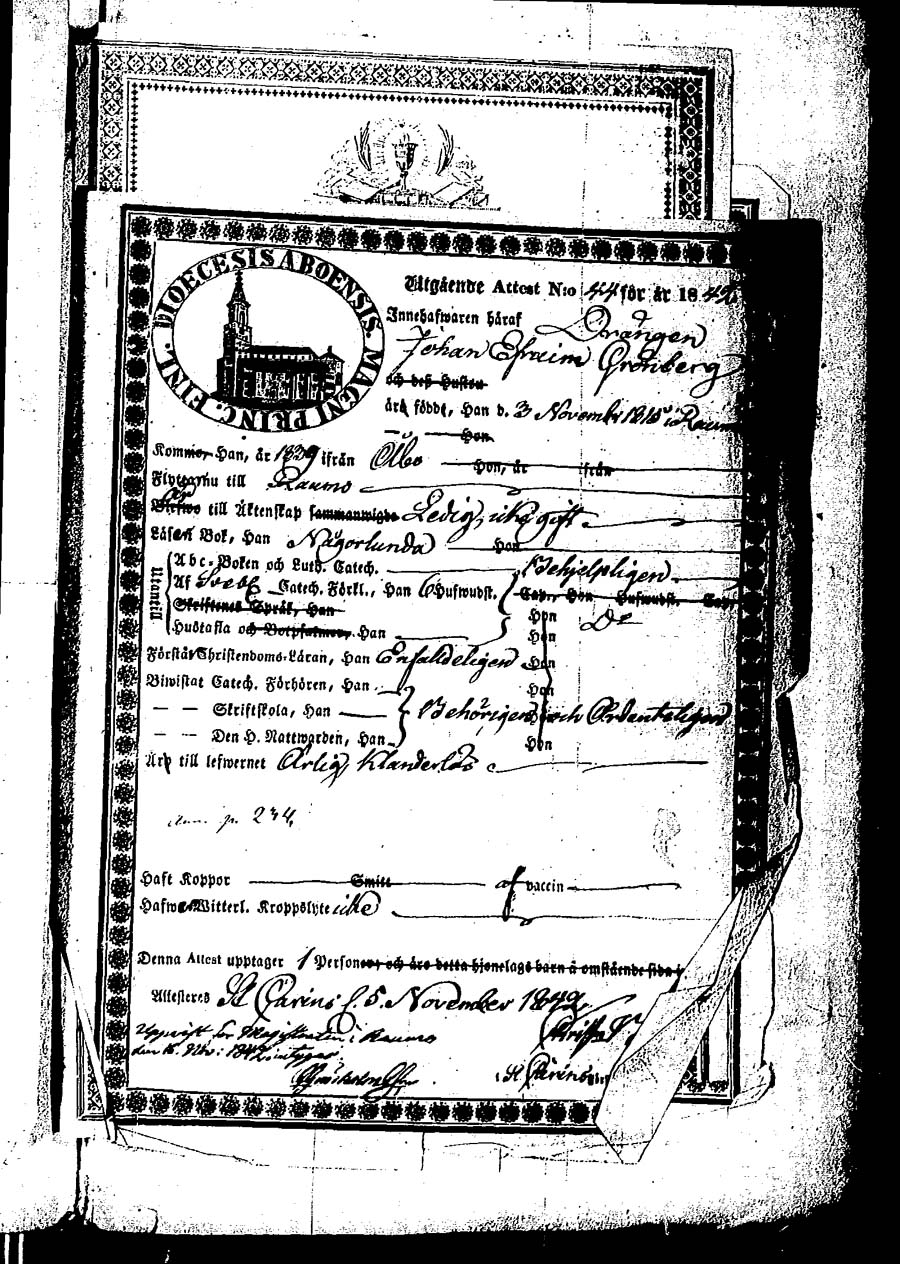 DIOECESIS ABOENSIS. MAGNI PRINC. FINL.
Utgående Attest N:o 44 för år 1842
Innehafwaren häraf Drängen
Johan Efraim Grönberg
och deß Hustru
är födde, Han d. 3 November 1818 i Raumo
Hon
Kommer Han, år 1839 ifrån Åbo Hon, år ifrån
Flyttar nu till Raumo
Är till Äktenskap sammanwigde Ledig, icke gift
Läser i Bok, Han Någorlunda Hon
Utantill
Abc-Boken och Luth. Catech. Behjelpligen
Af Sveb. Catech. Förkl., Han 6 Hufwudst. Cap., Hon Hufwudst. Cap.
Skriftenes Språk, Han Hon Do
Hustafla och Botpsalmer, Han Hon
Förstår Christendoms-Läran, Han Enfaldeligen Hon
Biwistat Catech. Förhören, Han Hon
— — Skriftskola, Han Behörigen och Ordenteligen
— — Den H. Nattwarden, Han Hon
Är till lefwernet Ärlig, Klanderlös
p. 234
Haft Koppor Smitt af vaccin
Hafwer Witterl. Kroppslyte icke
Denna Attest upptager 1 Personer, och äro detta hjonelags barn å omstående sida
Attesteras St Carins d. 5 November 1842
Uppvist för Magistraten i Raumo
den 16 Nov: 1842, intygar
St Carins